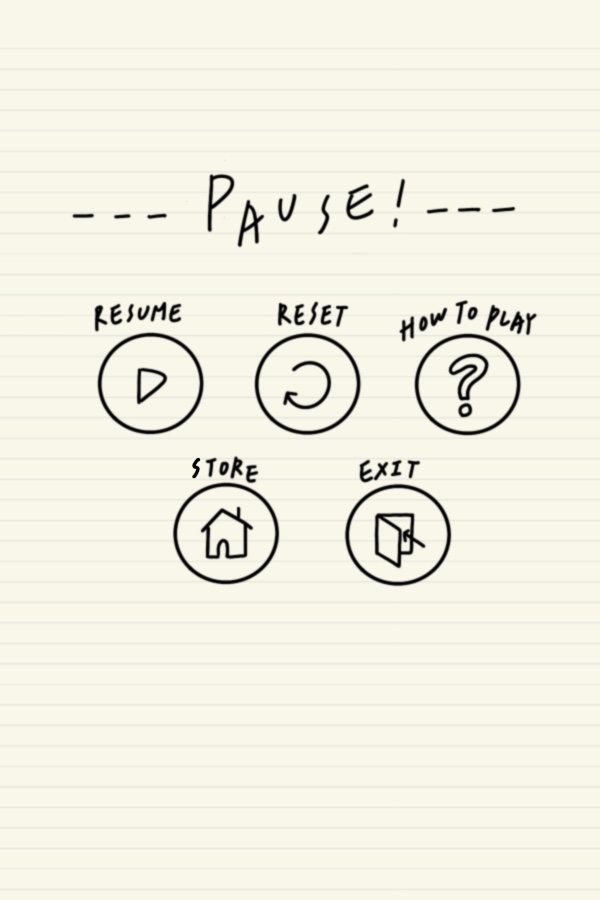 --- PAUSE! ---
RESUME RESET HOW TO PLAY
STORE EXIT